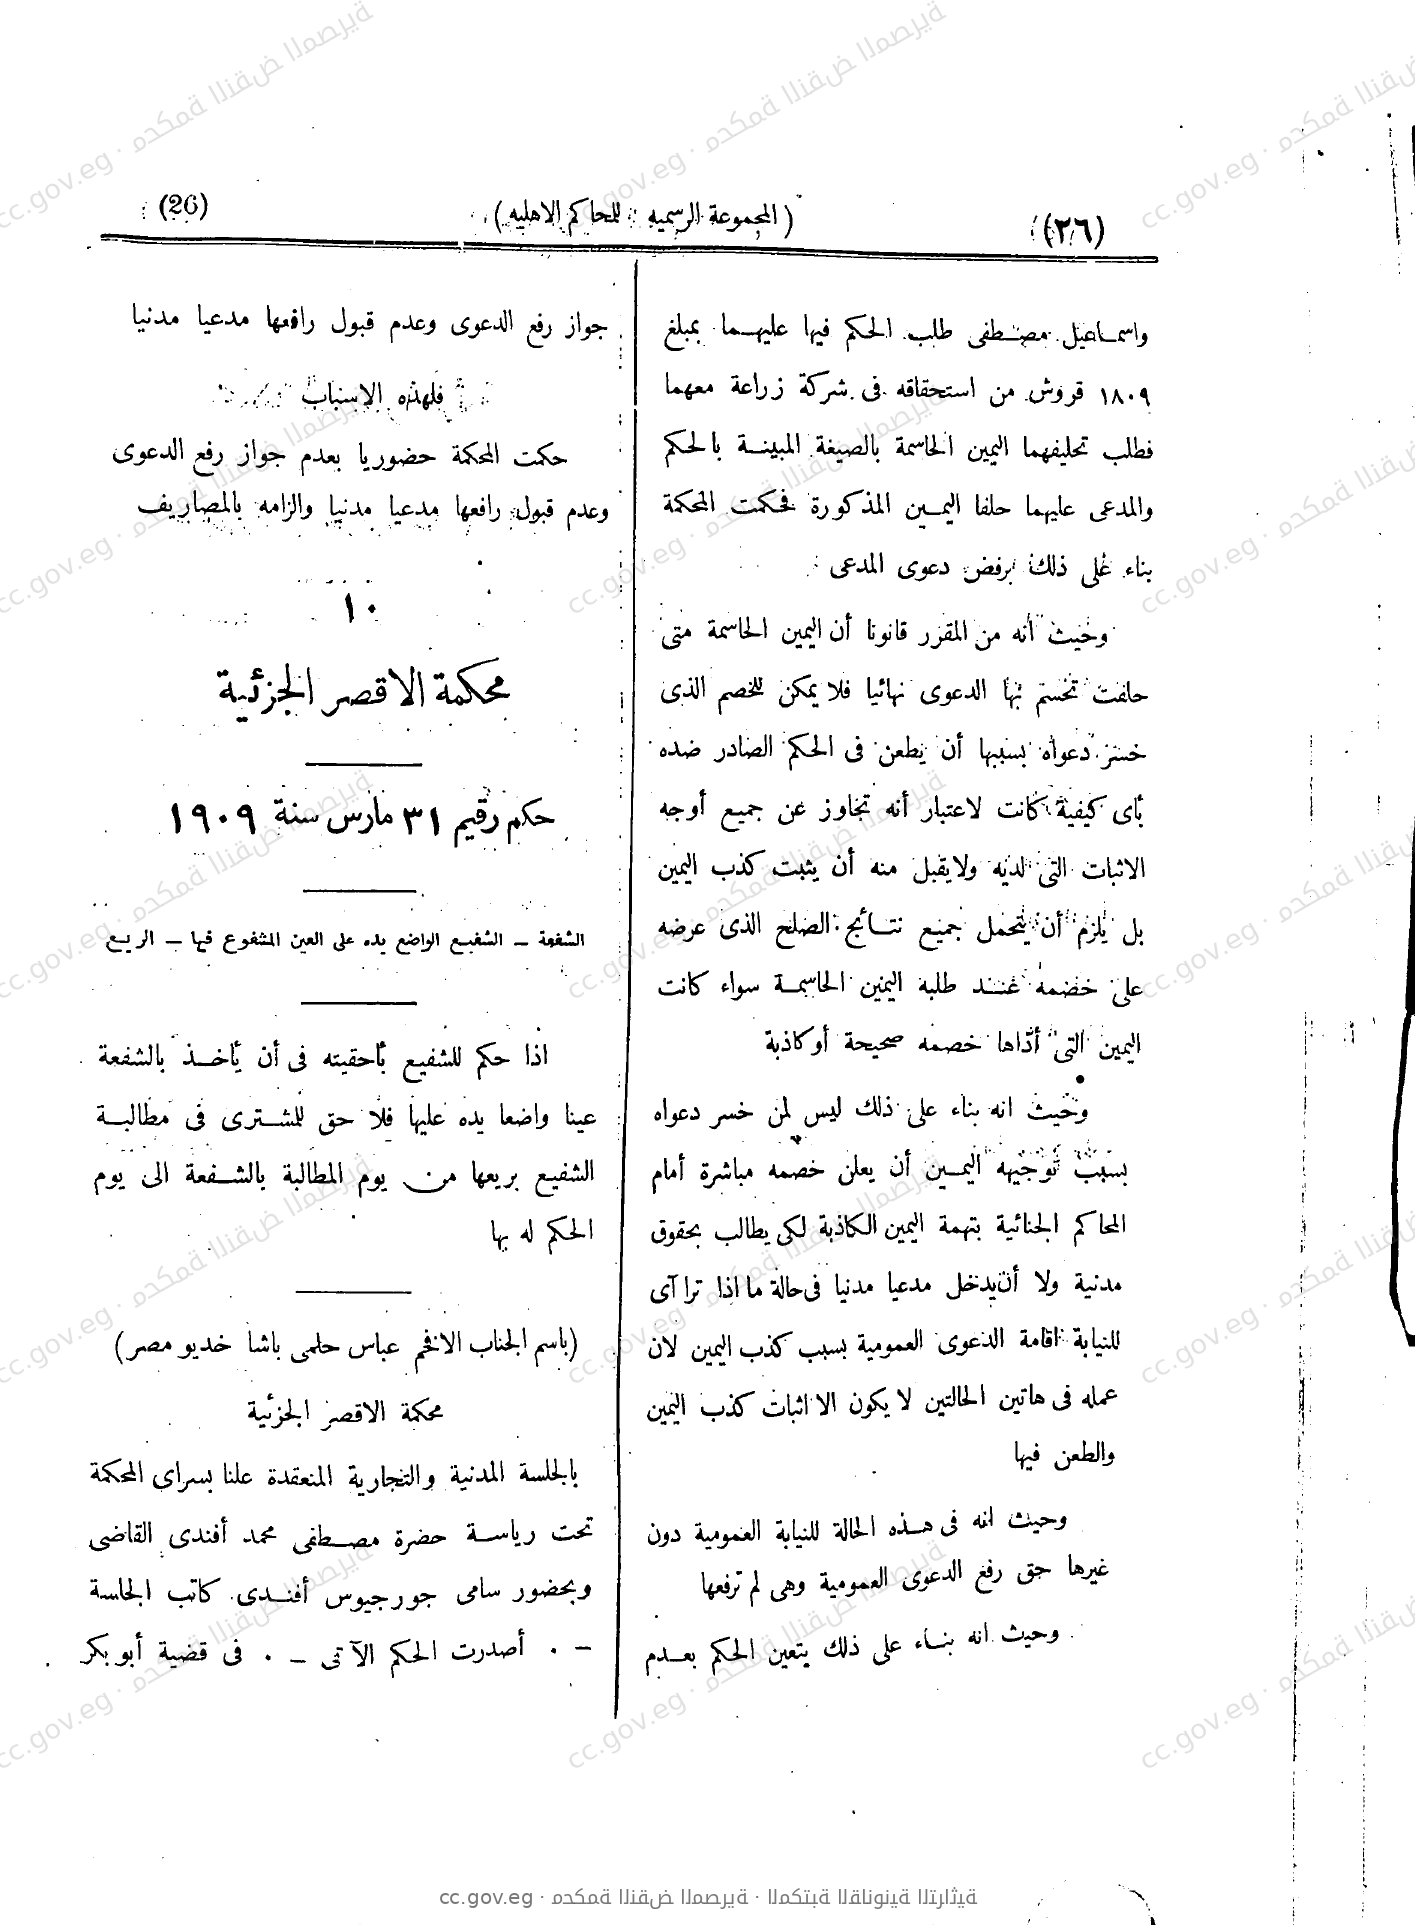 (٢٦)
( المجموعة الرسميه للحاكم الاهليه )
(26)
واسماعيل مصطفى طلب الحكم فيها عليهما بمبلغ
١٨٠٩ قروش من استحقاقه فى شركة زراعة معهما
فطلب تحليفهما اليمين الحاسمة بالصيغة المبينة بالحكم
والمدعى عليهما حلفا اليمين المذكورة فحكمت المحكمة
بناء على ذلك برفض دعوى المدعى
وحيث أنه من المقرر قانونا أن اليمين الحاسمة متى
حلفت تحسم بها الدعوى نهائيا فلا يمكن للخصم الذى
خسر دعواه بسببها أن يطعن فى الحكم الصادر ضده
بأى كيفية كانت لاعتبار أنه تجاوز عن جميع أوجه
الاثبات التى لديه ولا يقبل منه أن يثبت كذب اليمين
بل يلزم أن يتحمل جميع نتائج الصلح الذى عرضه
على خصمه عند طلبه اليمين الحاسمة سواء كانت
اليمين التى أداها خصمه صحيحة أو كاذبة
وحيث انه بناء على ذلك ليس لمن خسر دعواه
بسبب توجيهه اليمين أن يعلن خصمه مباشرة أمام
المحاكم الجنائية بتهمة اليمين الكاذبة لكى يطالب بحقوق
مدنية ولا أن يدخل مدعيا مدنيا فى حالة ما اذا تراآى
للنيابة اقامة الدعوى العمومية بسبب كذب اليمين لان
عمله فى هاتين الحالتين لا يكون الا اثبات كذب اليمين
والطعن فيها
وحيث انه فى هذه الحالة للنيابة العمومية دون
غيرها حق رفع الدعوى العمومية وهى لم ترفعها
وحيث انه بناء على ذلك يتعين الحكم بعدم
جواز رفع الدعوى وعدم قبول رافعها مدعيا مدنيا
فلهذه الاسباب
حكمت المحكمة حضوريا بعدم جواز رفع الدعوى
وعدم قبول رافعها مدعيا مدنيا والزامه بالمصاريف
١٠
محكمة الاقصر الجزئية
حكم رقيم ٣١ مارس سنة ١٩٠٩
الشفعة – الشفيع الواضع يده على العين المشفوع فيها – الريع
اذا حكم للشفيع بأحقيته فى أن يأخذ بالشفعة
عينا واضعا يده عليها فلا حق للمشترى فى مطالبة
الشفيع بريعها من يوم المطالبة بالشفعة الى يوم
الحكم له بها
(باسم الجناب الافخم عباس حلمى باشا خديو مصر)
محكمة الاقصر الجزئية
بالجلسة المدنية والتجارية المنعقدة علنا بسراى المحكمة
تحت رياسة حضرة مصطفى محمد أفندى القاضى
وبحضور سامى جورجيوس أفندى كاتب الجلسة
– ٠ أصدرت الحكم الآتى – ٠ فى قضية أبو بكر
cc.gov.eg · محكمة النقض المصرية · المكتبة القانونية التراثية